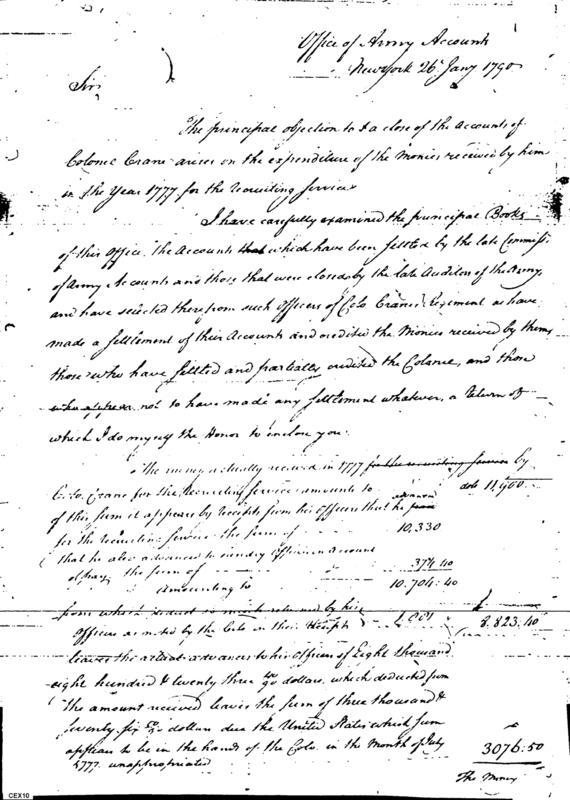 Office of Army Accounts
New York 26 Jany 1790
Sir,
The principal objection to a close of the Accounts of
Colonel Crane arises on the expenditure of the Monies received by him
in the Year 1777 for the recruiting Service
I have carefully examined the principal Books
of this Office, the Accounts that which have been settled by the late Commissr
of Army Accounts and those that were closed by the late Auditors of the Army
and have selected therefrom such Officers of Colo Cranes Regiment as have
made a settlement of their Accounts and credited the Monies received by them,
those who have settled and partially credited the Colonel, and those
who appear not to have made any settlement whatever, a return of
which I do myself the Honor to inclose you.
The money actually received in 1777 for the recruiting service by
Colo. Crane for the Recruiting Service amounts to dols 11,900
of this sum it appears by Receipts from his Officers that he advanced
for the recruiting service the sum of 10,330
that he also advanced to sundry Officers on Account
of pay, the sum of 374.40
Amounting to 10.704:40
from which deduct so much returned by his
Officers as noted by the Colo in their Receipts 1.881 8.823.40
leaves the actual advances to his Officers of Eight thousand
eight hundred & twenty three 40/90 dollars, which deducted from
the amount received leaves the sum of three thousand &
seventy six 50/90 dollars due the United States which sum
appears to be in the hands of the Colo. in the Month of July
1777 unappropriated 3076:50
The Money
CEX10